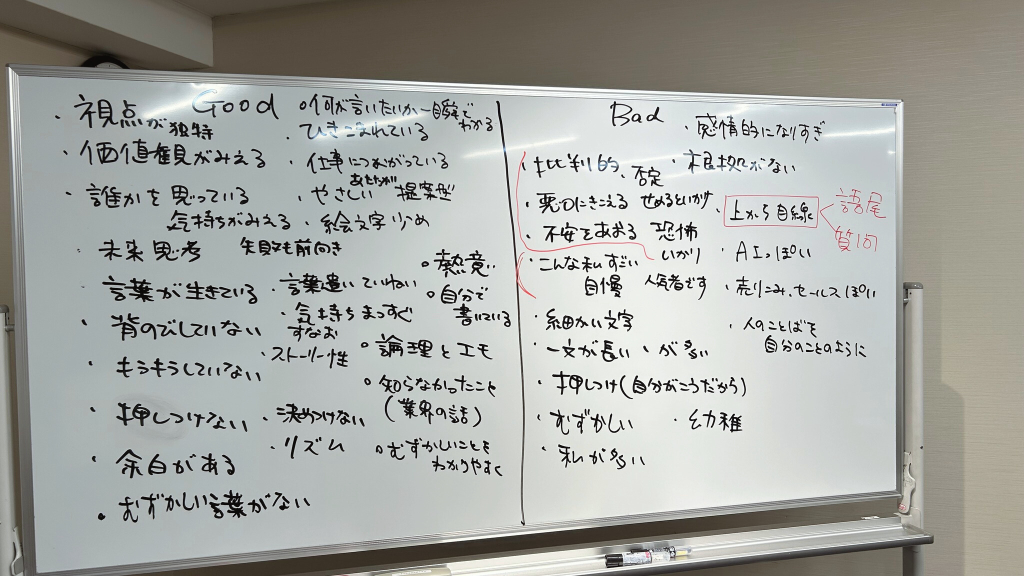 Good
・視点が独特
・価値観がみえる
・誰かを思っている
気持ちがみえる
・未来思考 失敗も前向き
・言葉が生きている
・背のびしていない
・もうもうしていない
・押しつけない
・余白がある
・むずかしい言葉がない
○何が言いたいか一瞬でわかる
・ひきこまれている
・仕事につながっている
・やさしい あたたかい 提案型
・絵文字少なめ
・言葉遣いていねい
・気持ちまっすぐ
すなお
・ストーリー性
・決めつけない
・リズム
○熱意
○自分で
書いている
○論理とエモ
○知らなかったこと
(業界の話)
○むずかしいことを
わかりやすく
Bad
・批判的、否定
・悪口にきこえる せめるといかず
・不安をあおる 恐怖
いかり
・こんな私すごい
自慢 人気者です
・細かい文字
・一文が長い ・が多い
・押しつけ(自分がこうだから)
・むずかしい ・幼稚
・私が多い
・感情的になりすぎ
・根拠がない
・上から目線
語尾
質問
・AIっぽい
・売りこみ、セールスぽい
・人のことばを
自分のことのように